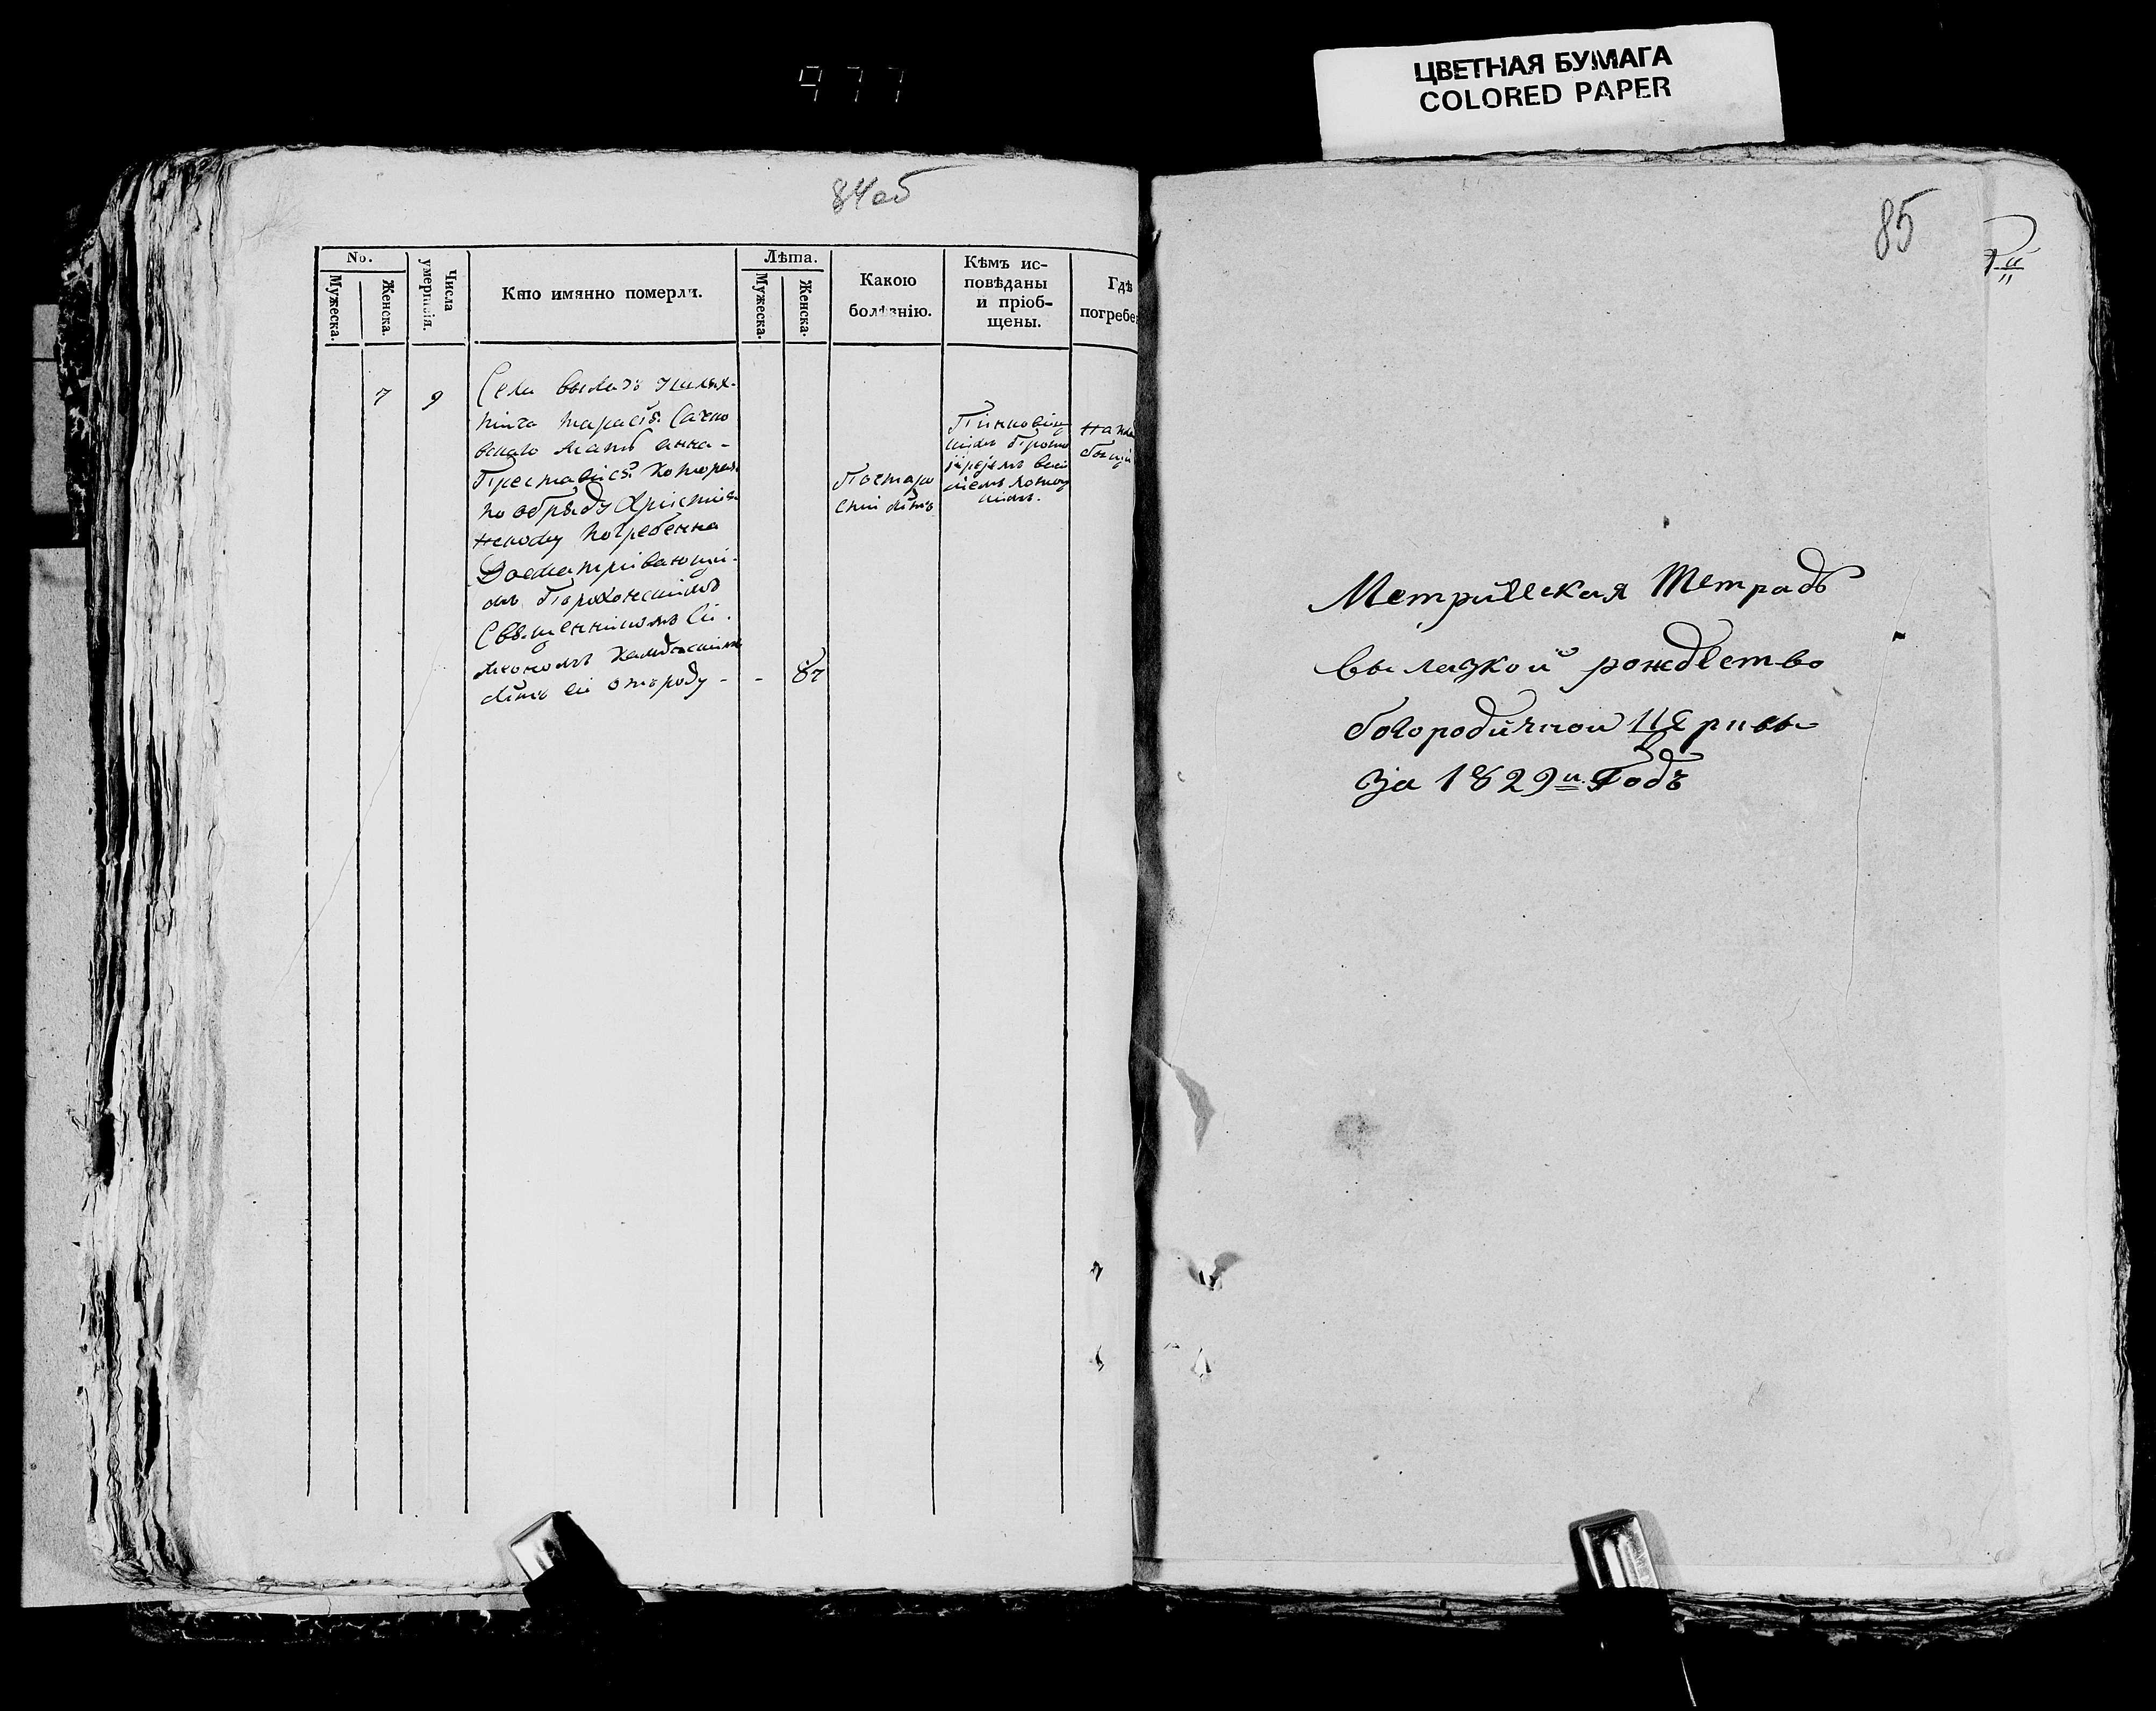 977
ЦВЕТНАЯ БУМАГА
COLORED PAPER
84об
No.
Мужеска.
Женска.
Числа умершія.
Кто имянно померли.
Лѣта.
Мужеска.
Женска.
Какою болѣзнію.
Кѣмъ исповѣданы и пріобщены.
Гдѣ погребе
7
9
Села вылазъ шлях-
тича тарасія Сачко
вскаго мать анна -
Преставися которая
по обряду Христия
нскому Погребенна
Досматривающи-
мъ Порохонскимъ
Священникомъ Си-
меономъ
лѣтъ ей отъроду -
-
87
Постаро
сти лѣтъ
Пинкович
скимъ Прото
іереемъ
На кла
бищи
85
Метрическая Тетрадь
вылазкой рождество
богородичной Церквы
За 1829й Годъ